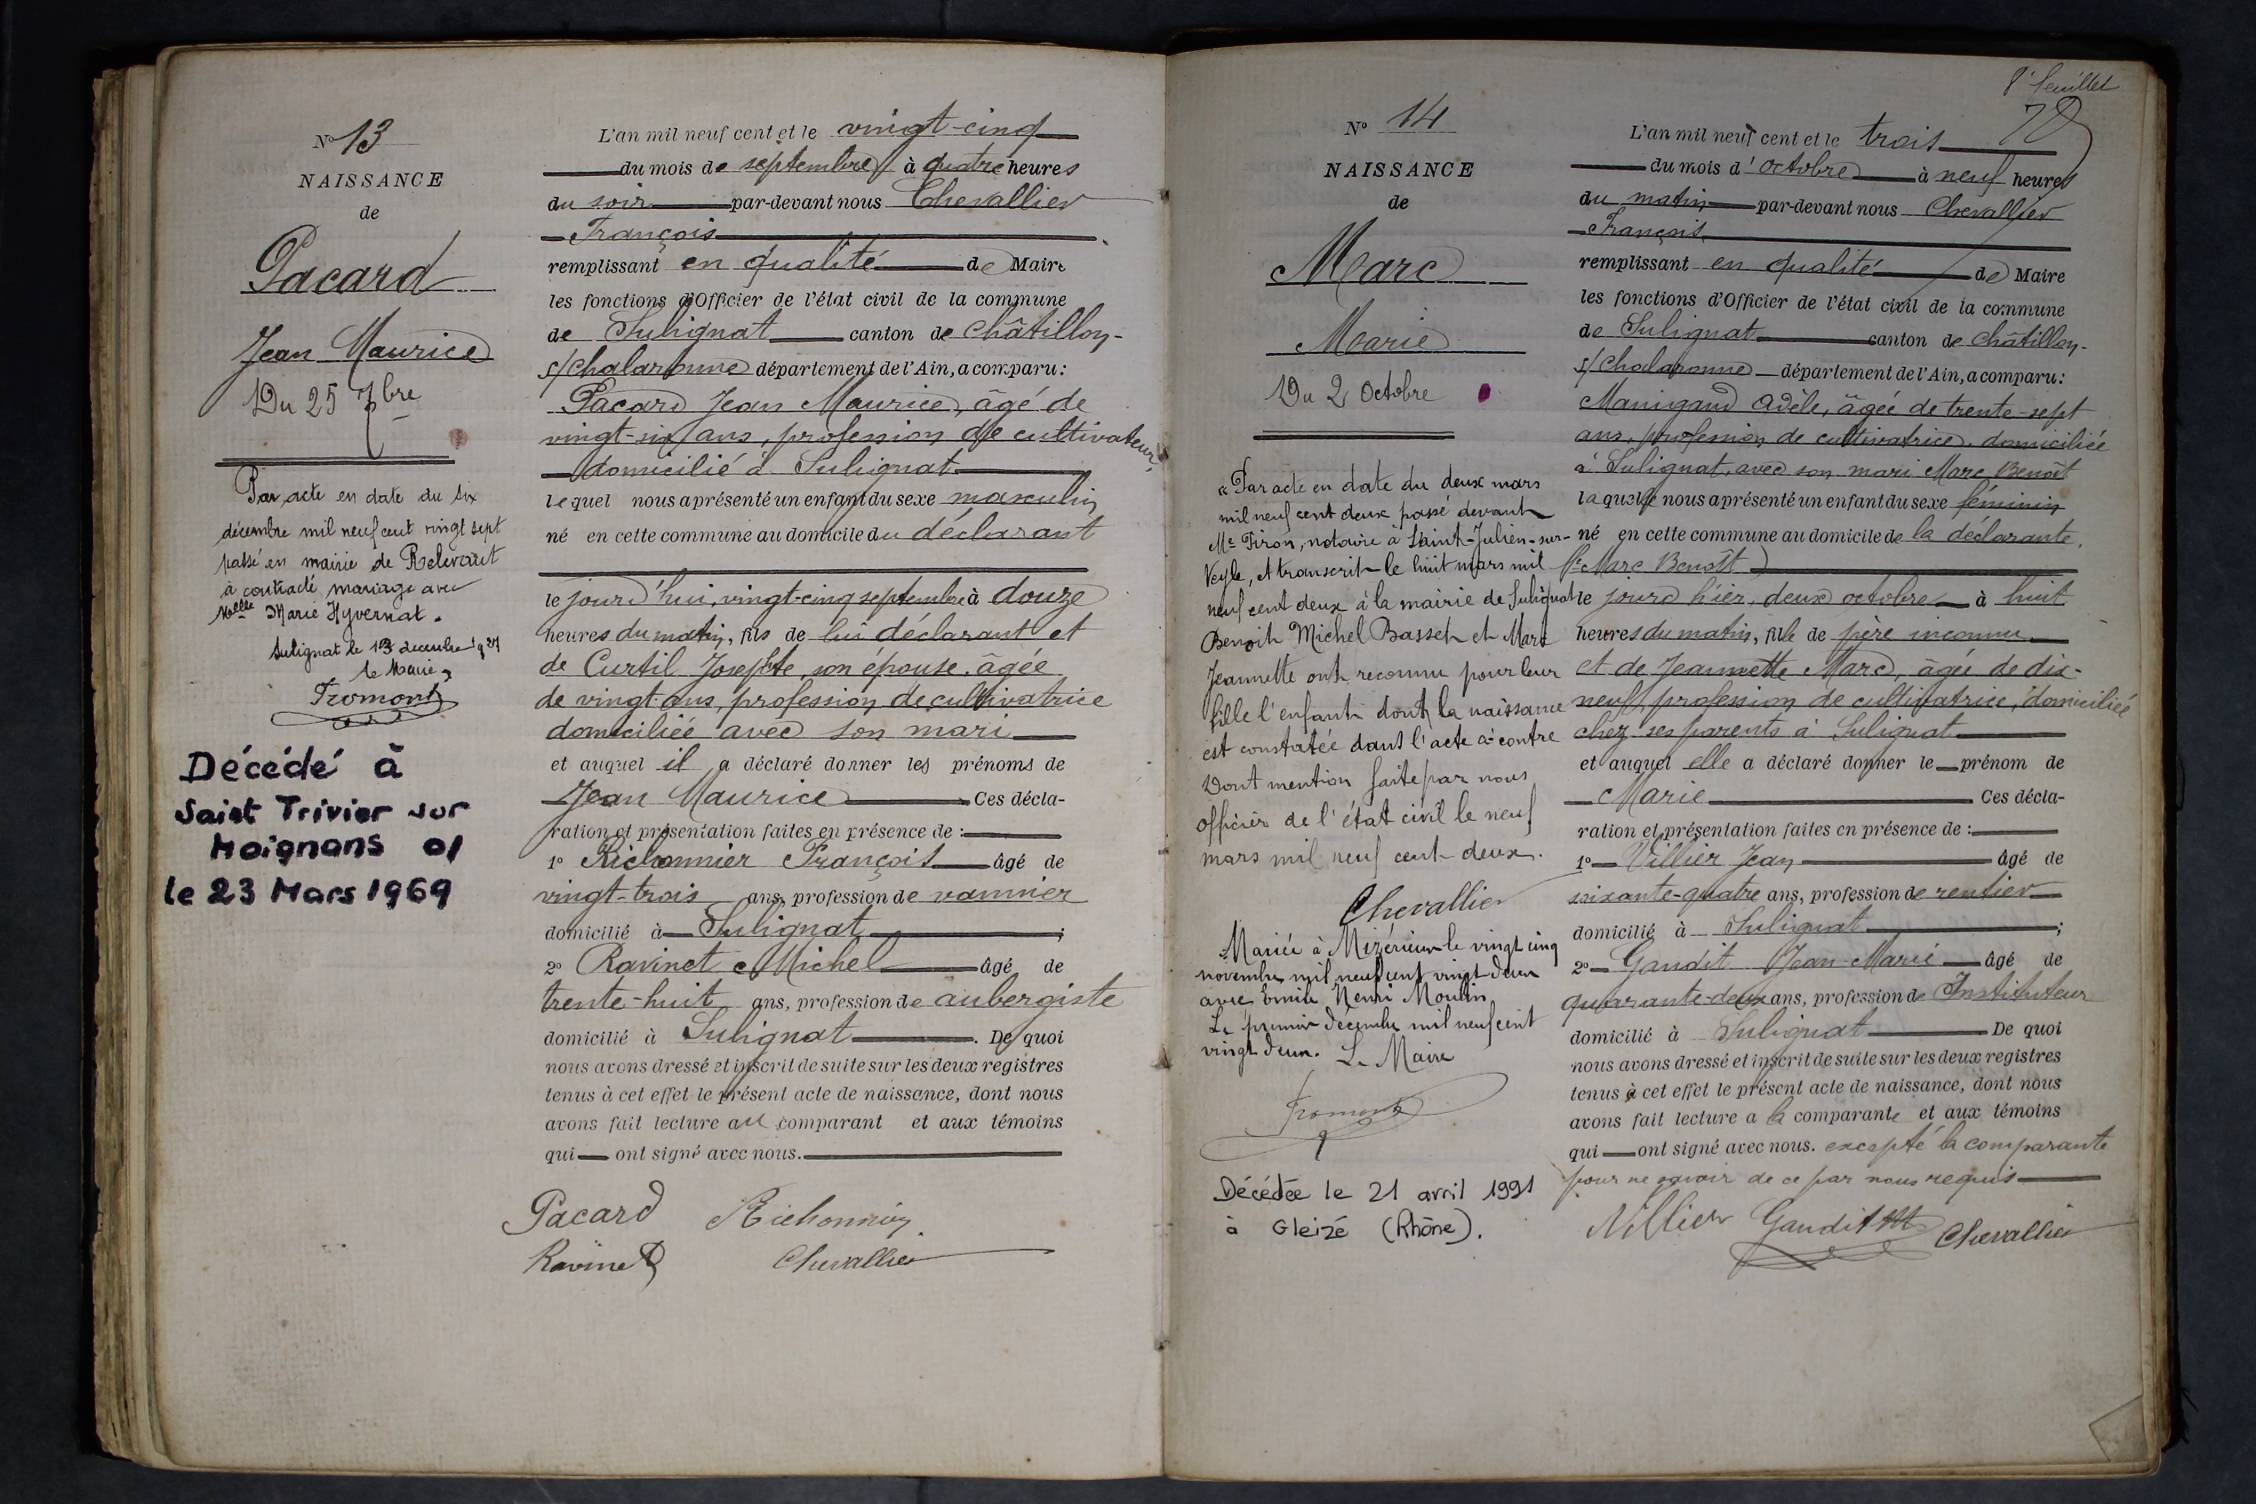 N° 13
NAISSANCE
de
Pacard
Jean Maurice
Du 25 7bre
Par acte en date du six
décembre mil neuf cent vingt sept
passé en mairie de Relevant
à contracté mariage avec
Melle Marie Hyvernat.
Sulignat le 13 décembre 1927
le Maire,
Fromont
Décédé à
Saint Trivier sur
Moignans 01
le 23 Mars 1969
L'an mil neuf cent et le vingt-cinq
du mois de septembre à quatre heures
du soir par-devant nous Chevallier
François
remplissant en qualité de Maire
les fonctions d'Officier de l'état civil de la commune
de Sulignat canton de Châtillon-
s/Chalaronne département de l'Ain, a comparu:
Pacard Jean Maurice, âgé de
vingt-six ans, profession de cultivateur,
domicilié à Sulignat
lequel nous a présenté un enfant du sexe masculin
né en cette commune au domicile du déclarant
le jourd'hui, vingt-cinq septembre à douze
heures du matin, fils de lui déclarant et
de Curtil Josephte son épouse, âgée
de vingt ans, profession de cultivatrice
domiciliée avec son mari
et auquel il a déclaré donner les prénoms de
Jean Maurice Ces décla-
ration et présentation faites en présence de :
1° Richonnier François âgé de
vingt-trois ans, profession de vannier
domicilié à Sulignat ;
2° Ravinet Michel âgé de
trente-huit ans, profession de aubergiste
domicilié à Sulignat. De quoi
nous avons dressé et inscrit de suite sur les deux registres
tenus à cet effet le présent acte de naissance, dont nous
avons fait lecture au comparant et aux témoins
qui ont signé avec nous.
Pacard Richonnier
Ravinet Chevallier
8e feuillet
N° 14
NAISSANCE
de
Marc
Marie
Du 2 Octobre
« Par acte en date du deux mars
mil neuf cent deux passé devant
Me Tiron, notaire à Saint-Julien-sur-
Veyle, et transcrit le huit mars mil
neuf cent deux à la mairie de Sulignat
Benoit Michel Basset et Marc
Jeannette ont reconnu pour leur
fille l'enfant dont la naissance
est constatée dans l'acte ci-contre
Dont mention faite par nous
officier de l'état civil le neuf
mars mil neuf cent deux.
Chevallier
Mariée à Mizérieux le vingt cinq
novembre mil neuf cent vingt deux
avec Emile Henri Moulin
Le premier décembre mil neuf cent
vingt deux. Le Maire
Fromont
Décédée le 21 avril 1991
à Gleizé (Rhône).
L'an mil neuf cent et le trois
du mois d'octobre à neuf heures
du matin par-devant nous Chevallier
François
remplissant en qualité de Maire
les fonctions d'Officier de l'état civil de la commune
de Sulignat canton de Châtillon-
s/Chalaronne département de l'Ain, a comparu:
Manigand Adèle, âgée de trente-sept
ans, profession de cultivatrice, domiciliée
à Sulignat, avec son mari Marc Benoît
laquelle nous a présenté un enfant du sexe féminin
né en cette commune au domicile de la déclarante,
Marc Benoît
le jourd'hier, deux octobre à huit
heures du matin, fille de père inconnu
et de Jeannette Marc, âgée de dix-
neuf, profession de cultivatrice, domiciliée
chez ses parents à Sulignat
et auquel elle a déclaré donner le prénom de
Marie Ces décla-
ration et présentation faites en présence de :
1° Villier Jean âgé de
soixante-quatre ans, profession de rentier
domicilié à Sulignat ;
2° Gaudit Jean-Marie âgé de
quarante-deux ans, profession de Instituteur
domicilié à Sulignat De quoi
nous avons dressé et inscrit de suite sur les deux registres
tenus à cet effet le présent acte de naissance, dont nous
avons fait lecture a la comparante et aux témoins
qui ont signé avec nous. excepté la comparante
pour ne savoir de ce par nous requis
Villier Gaudit JM Chevallier